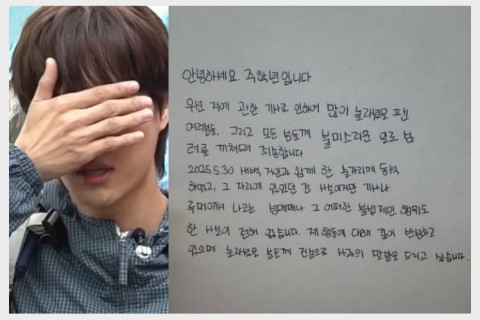 안녕하세요. 주학년입니다
우선 저에 관한 기사로 인하여 많이 놀라셨을 팬
여러분들, 그리고 모든 분들께 불미스러운 일로 심
려를 끼쳐드려 죄송합니다
2025.5.30 새벽 지인과 함께 한 술자리에 동석
하였고, 그 자리에 있었던 건 사실이지만 기사나
루머에서 나오는 성매매나 그 어떠한 불법적인 행위도
한 사실이 전혀 없습니다. 제 행동에 대해 깊이 반성하고
있으며 놀라셨을 분들께 진심으로 사과의 말씀을 드리고 싶습니다.